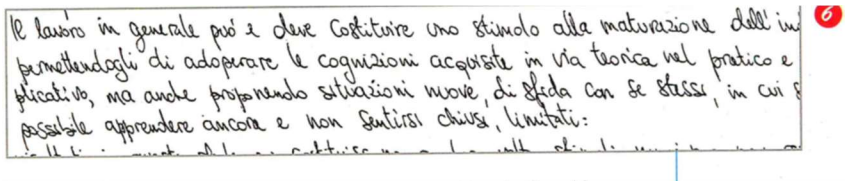 Il lavoro in generale può e deve costituire uno stimolo alla maturazione dell'in
permettendogli di adoperare le cognizioni acquisite in via teorica nel pratico e
plicativo, ma anche proponendo situazioni nuove, di sfida con se stessi, in cui s
possibile apprendere ancora e non sentirsi chiusi, limitati:
6